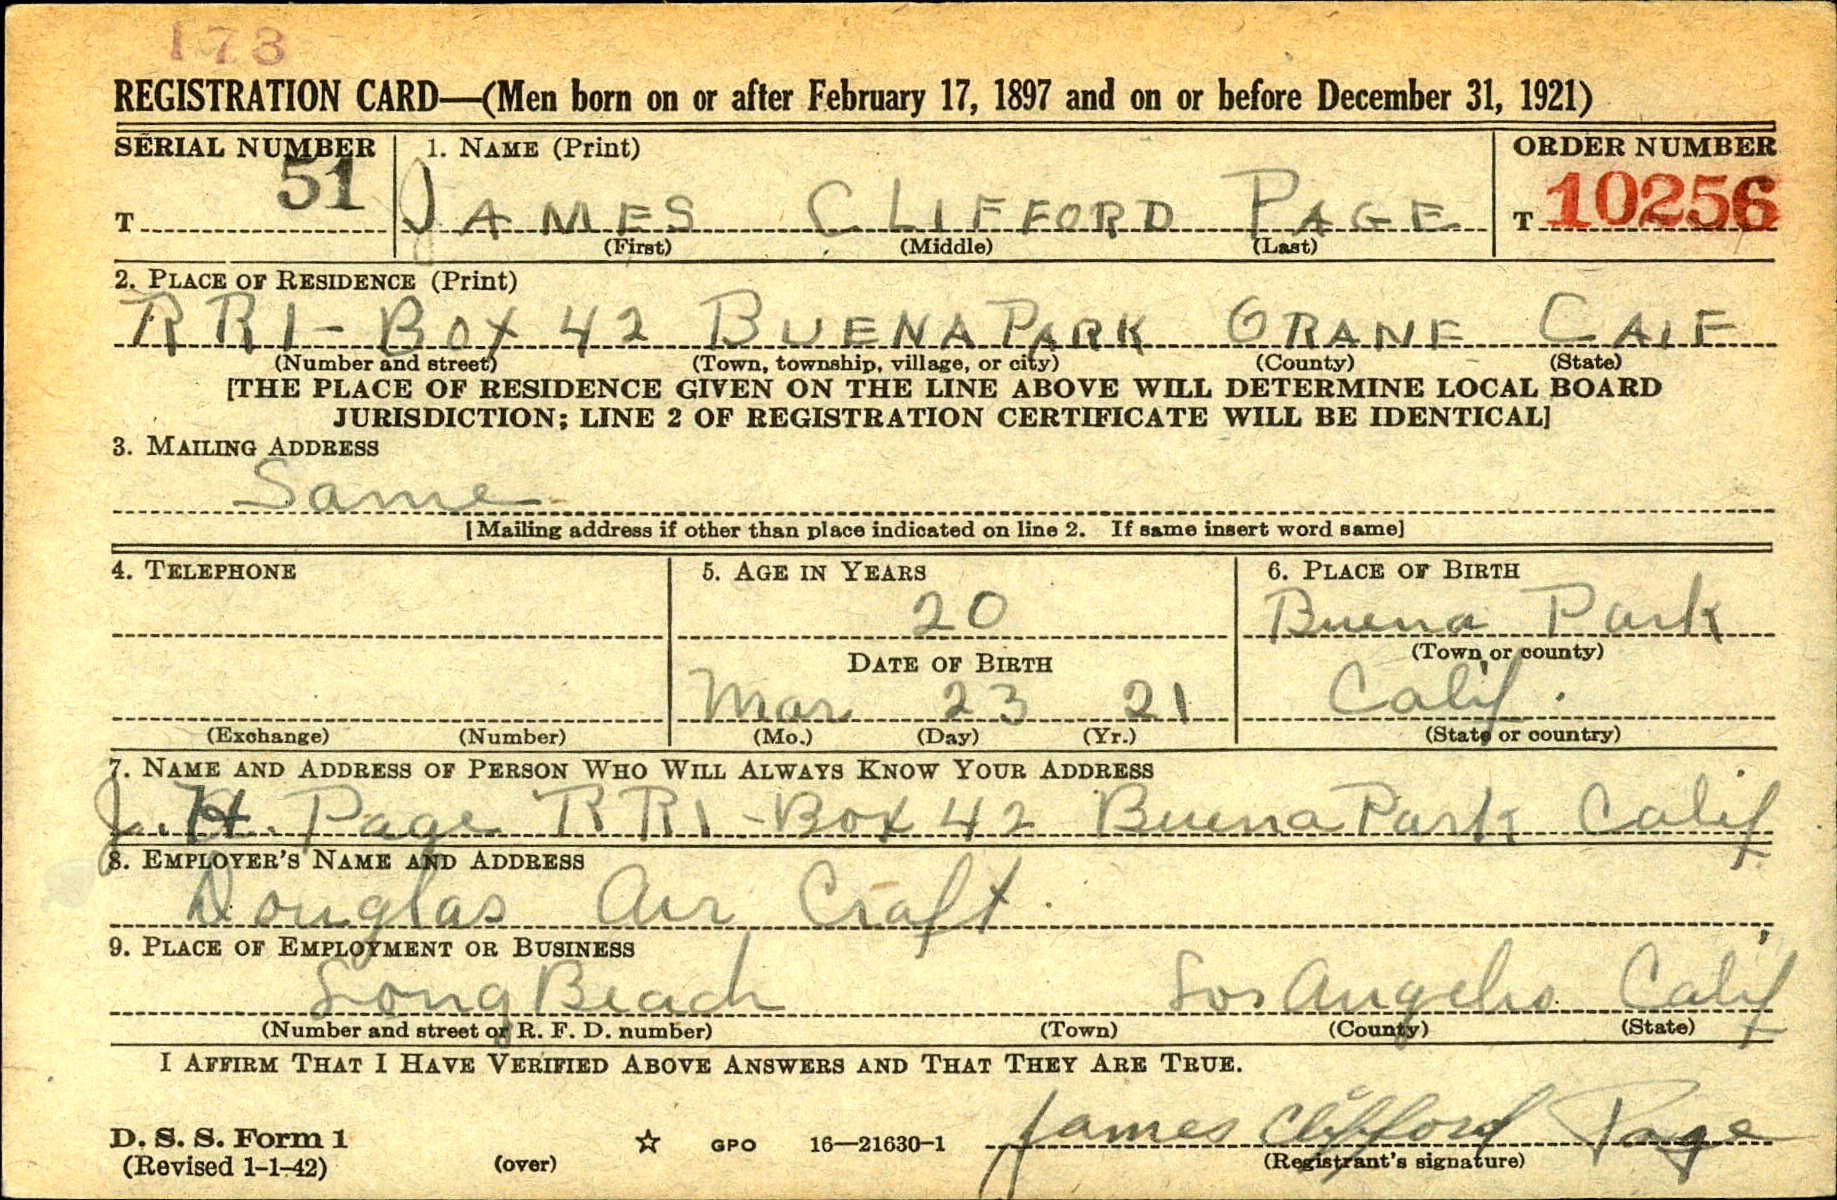 173
REGISTRATION CARD—(Men born on or after February 17, 1897 and on or before December 31, 1921)
SERIAL NUMBER 1. NAME (Print) ORDER NUMBER
T 51 JAMES CLIFFORD PAGE T 10256
(First) (Middle) (Last)
2. PLACE OF RESIDENCE (Print)
RR1-BOX 42 BUENA PARK ORANE CAIF
(Number and street) (Town, township, village, or city) (County) (State)
[THE PLACE OF RESIDENCE GIVEN ON THE LINE ABOVE WILL DETERMINE LOCAL BOARD
JURISDICTION; LINE 2 OF REGISTRATION CERTIFICATE WILL BE IDENTICAL]
3. MAILING ADDRESS
Same
[Mailing address if other than place indicated on line 2. If same insert word same]
4. TELEPHONE 5. AGE IN YEARS 6. PLACE OF BIRTH
20 Buena Park
DATE OF BIRTH (Town or county)
Mar 23 21 Calif.
(Exchange) (Number) (Mo.) (Day) (Yr.) (State or country)
7. NAME AND ADDRESS OF PERSON WHO WILL ALWAYS KNOW YOUR ADDRESS
J. H. Page RR1-Box 42 Buena Park Calif
8. EMPLOYER'S NAME AND ADDRESS
Douglas Air Craft
9. PLACE OF EMPLOYMENT OR BUSINESS
Long Beach Los Angeles Calif
(Number and street or R. F. D. number) (Town) (County) (State)
I AFFIRM THAT I HAVE VERIFIED ABOVE ANSWERS AND THAT THEY ARE TRUE.
D. S. S. Form 1 GPO 16—21630-1 James Clifford Page
(Revised 1-1-42) (over) (Registrant's signature)